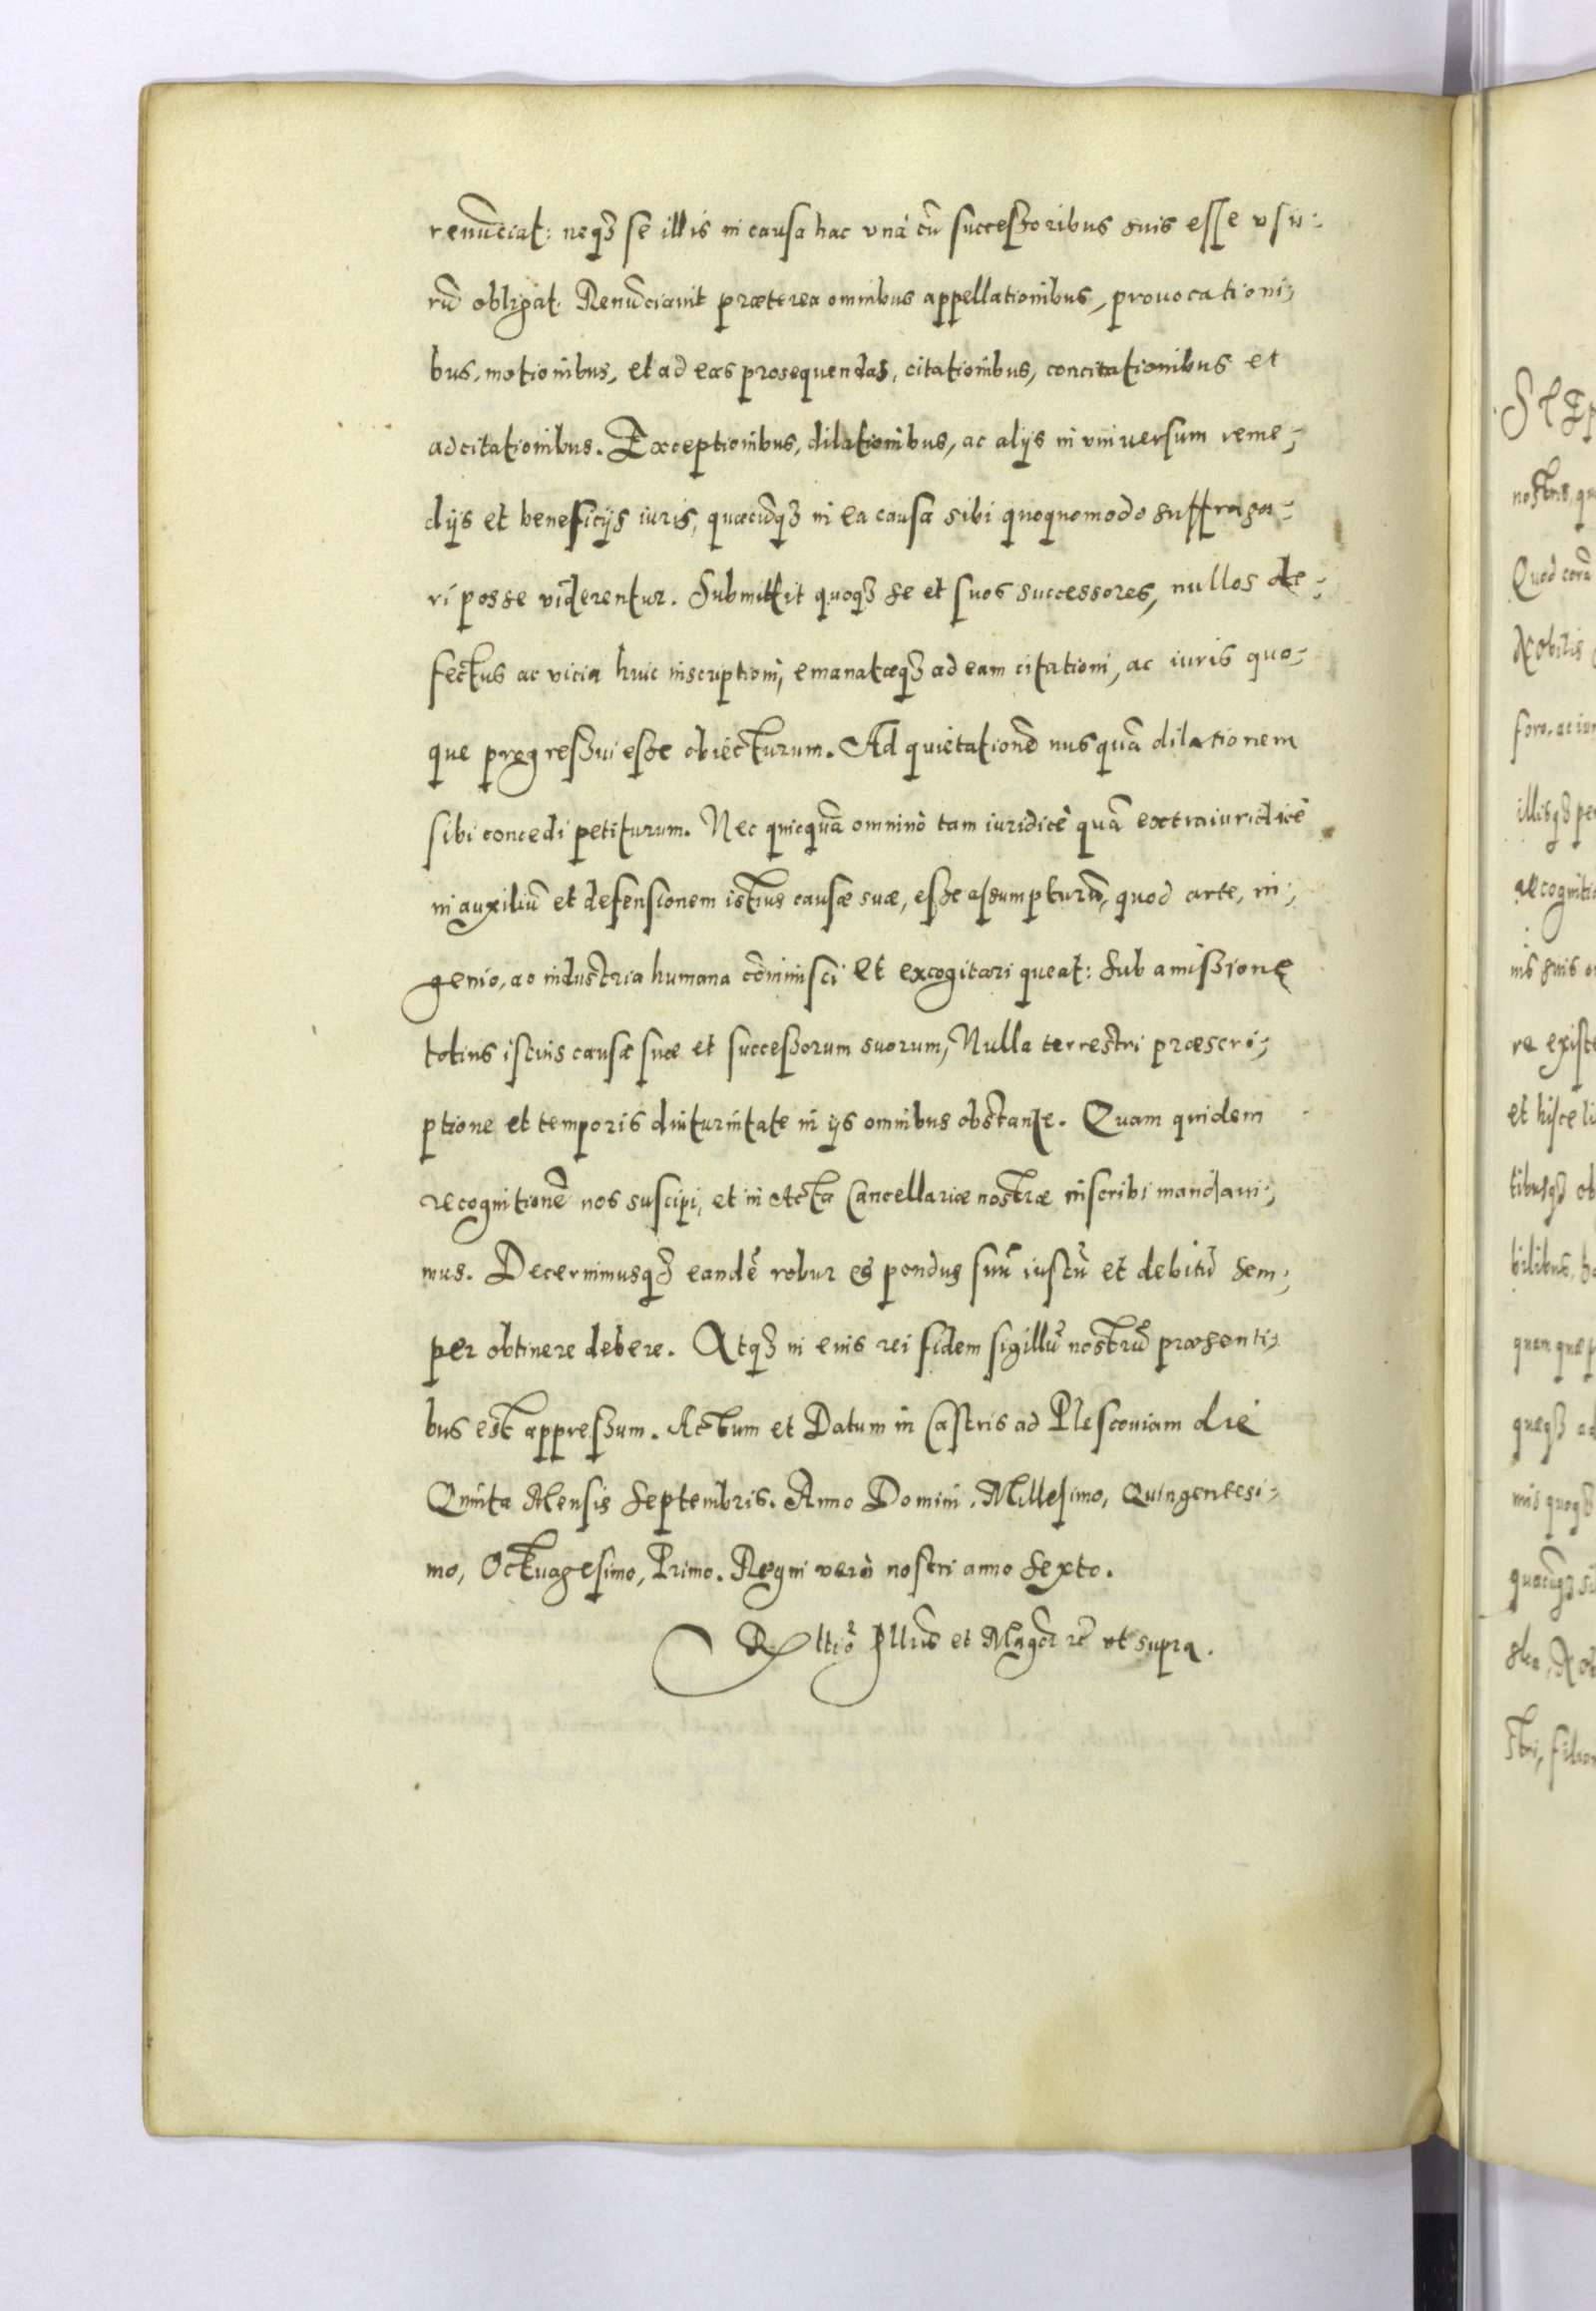 renūciat: neqꝫ se illis in causa hac unà cū successoribus suis esse usu-
rū obligat. Renūciavit præterea omnibus appellationibus, provocationi-
bus, motionibus, et ad eas prosequendas, citationibus, concitationibus et
adcitationibus. Exceptionibus, dilationibus, ac alijs in universum reme-
dijs et beneficijs iuris, quæcūqꝫ in ea causa sibi quoquomodo suffraga-
ri posse viderentur. Submittit quoqꝫ se et suos successores, nullos de-
fectus ac vicia huic inscriptioni, emanatæqꝫ ad eam citationi, ac iuris quo-
que progressui esse obiecturum. Ad quietationē nusquā dilationem
sibi concedi petiturum. Nec quicquā omninò tam iuridicè quā extraiuridicè
in auxiliū et defensionem istius causæ suæ, esse assumpturū, quod arte, in-
genio, ac industria humana cōminisci et excogitari queat: Sub amissione
totius istius causæ suæ et successorum suorum, Nulla terrestri præscri-
ptione et temporis diuturnitate in ijs omnibus obstante. Quam quidem
recognitionē nos suscipi, et in Acta Cancellariæ nostræ inscribi mandavi-
mus. Decernimusqꝫ eandē robur et pondus suū iustū et debitū sem-
per obtinere debere. Atqꝫ in eius rei fidem sigillū nostrū præsenti-
bus est appressum. Actum et Datum in Castris ad Plescoviam die
Quinta Mensis Septembris. Anno Domini. Millesimo, Quingentesi-
mo, Octuagesimo, Primo. Regni verò nostri anno sexto.
Rltiō Illris et Magci rc ut supra.